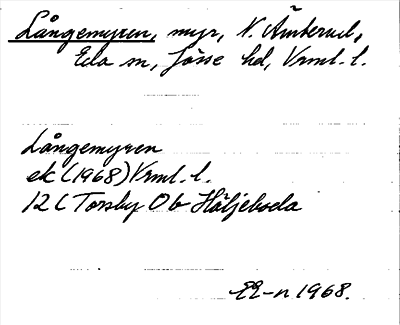 Långemyren, myr, N. Åmberud,
Eda sn, Jösse hd, Vrml. l.
Långemyren
ek (1968) Vrml. l.
12 C Torsby Ob Häljeboda
EE-n 1968.